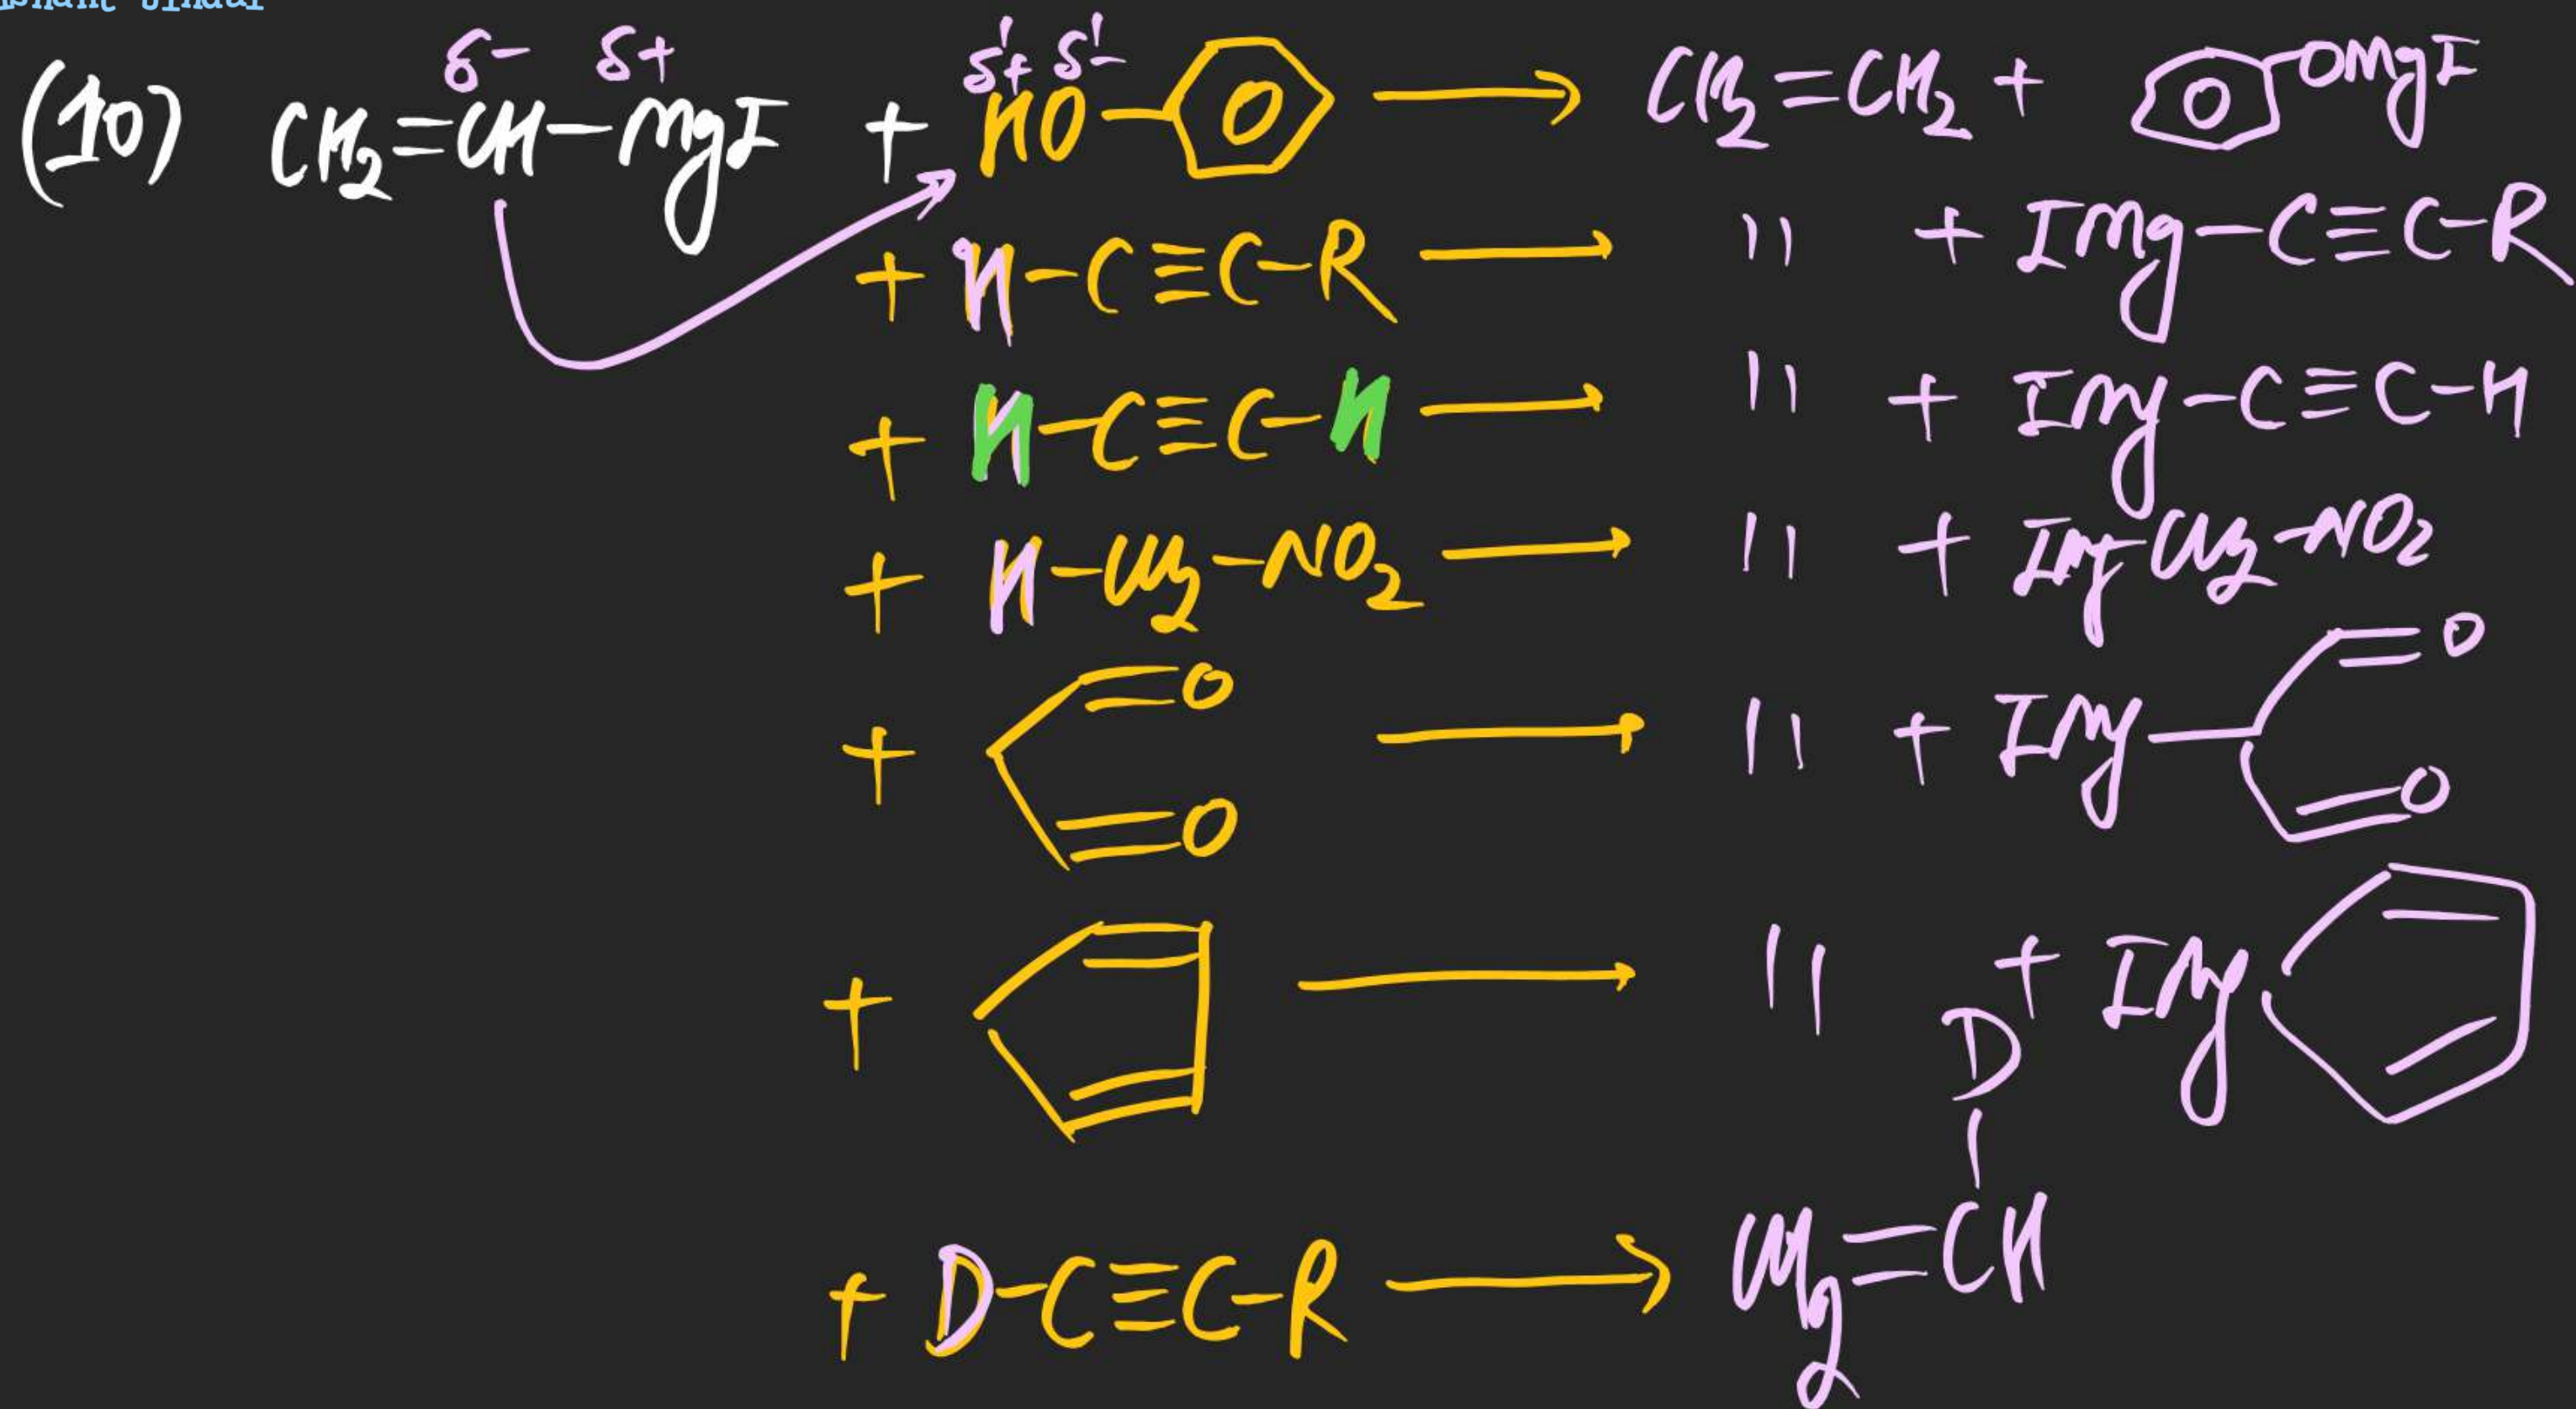 (10) CH₂=CH-MgI + HO- → CH₂=CH₂ + OMgI
δ- δ+ δ'+ δ'-
+ H-C≡C-R → '' + IMg-C≡C-R
+ H-C≡C-H → '' + IMg-C≡C-H
+ H-CH₂-NO₂ → '' + IMg-CH₂-NO₂
+ =O =O → '' + IMg- =O =O
+ → '' + IMg
+ D-C≡C-R → CH₂=CH
D